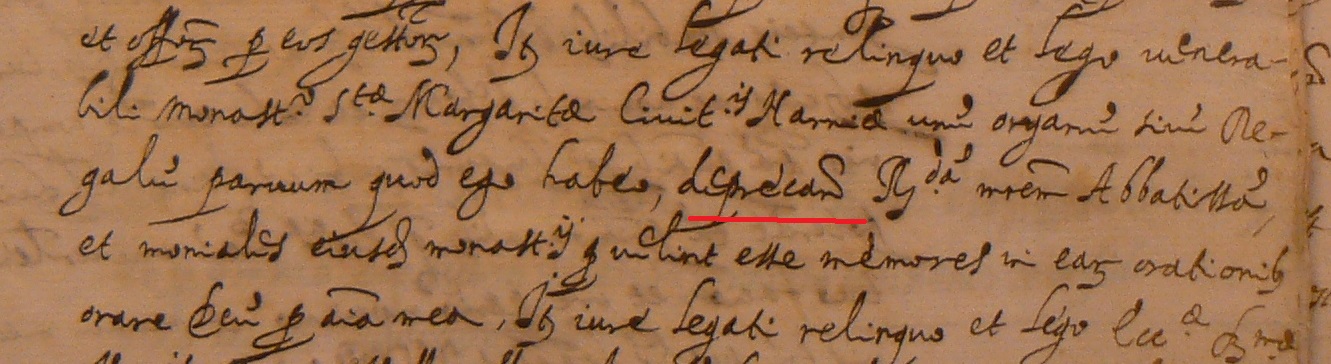 et offor̃ p eos gestor̃, Itz iure legati relinquo et lego venera-
bili Monast.º S.tæ Margaritæ Civit.ij Narniæ unũ organũ sivũ Re-
galũ parvum quod ego habeo, deprecanð R.dã mrẽm Abbatissã,
et moniales eiusð monast.ij q velint esse memores in ear̃ orationib
orare Deũ p aĩa mea, Itz iure legati relinquo et lego